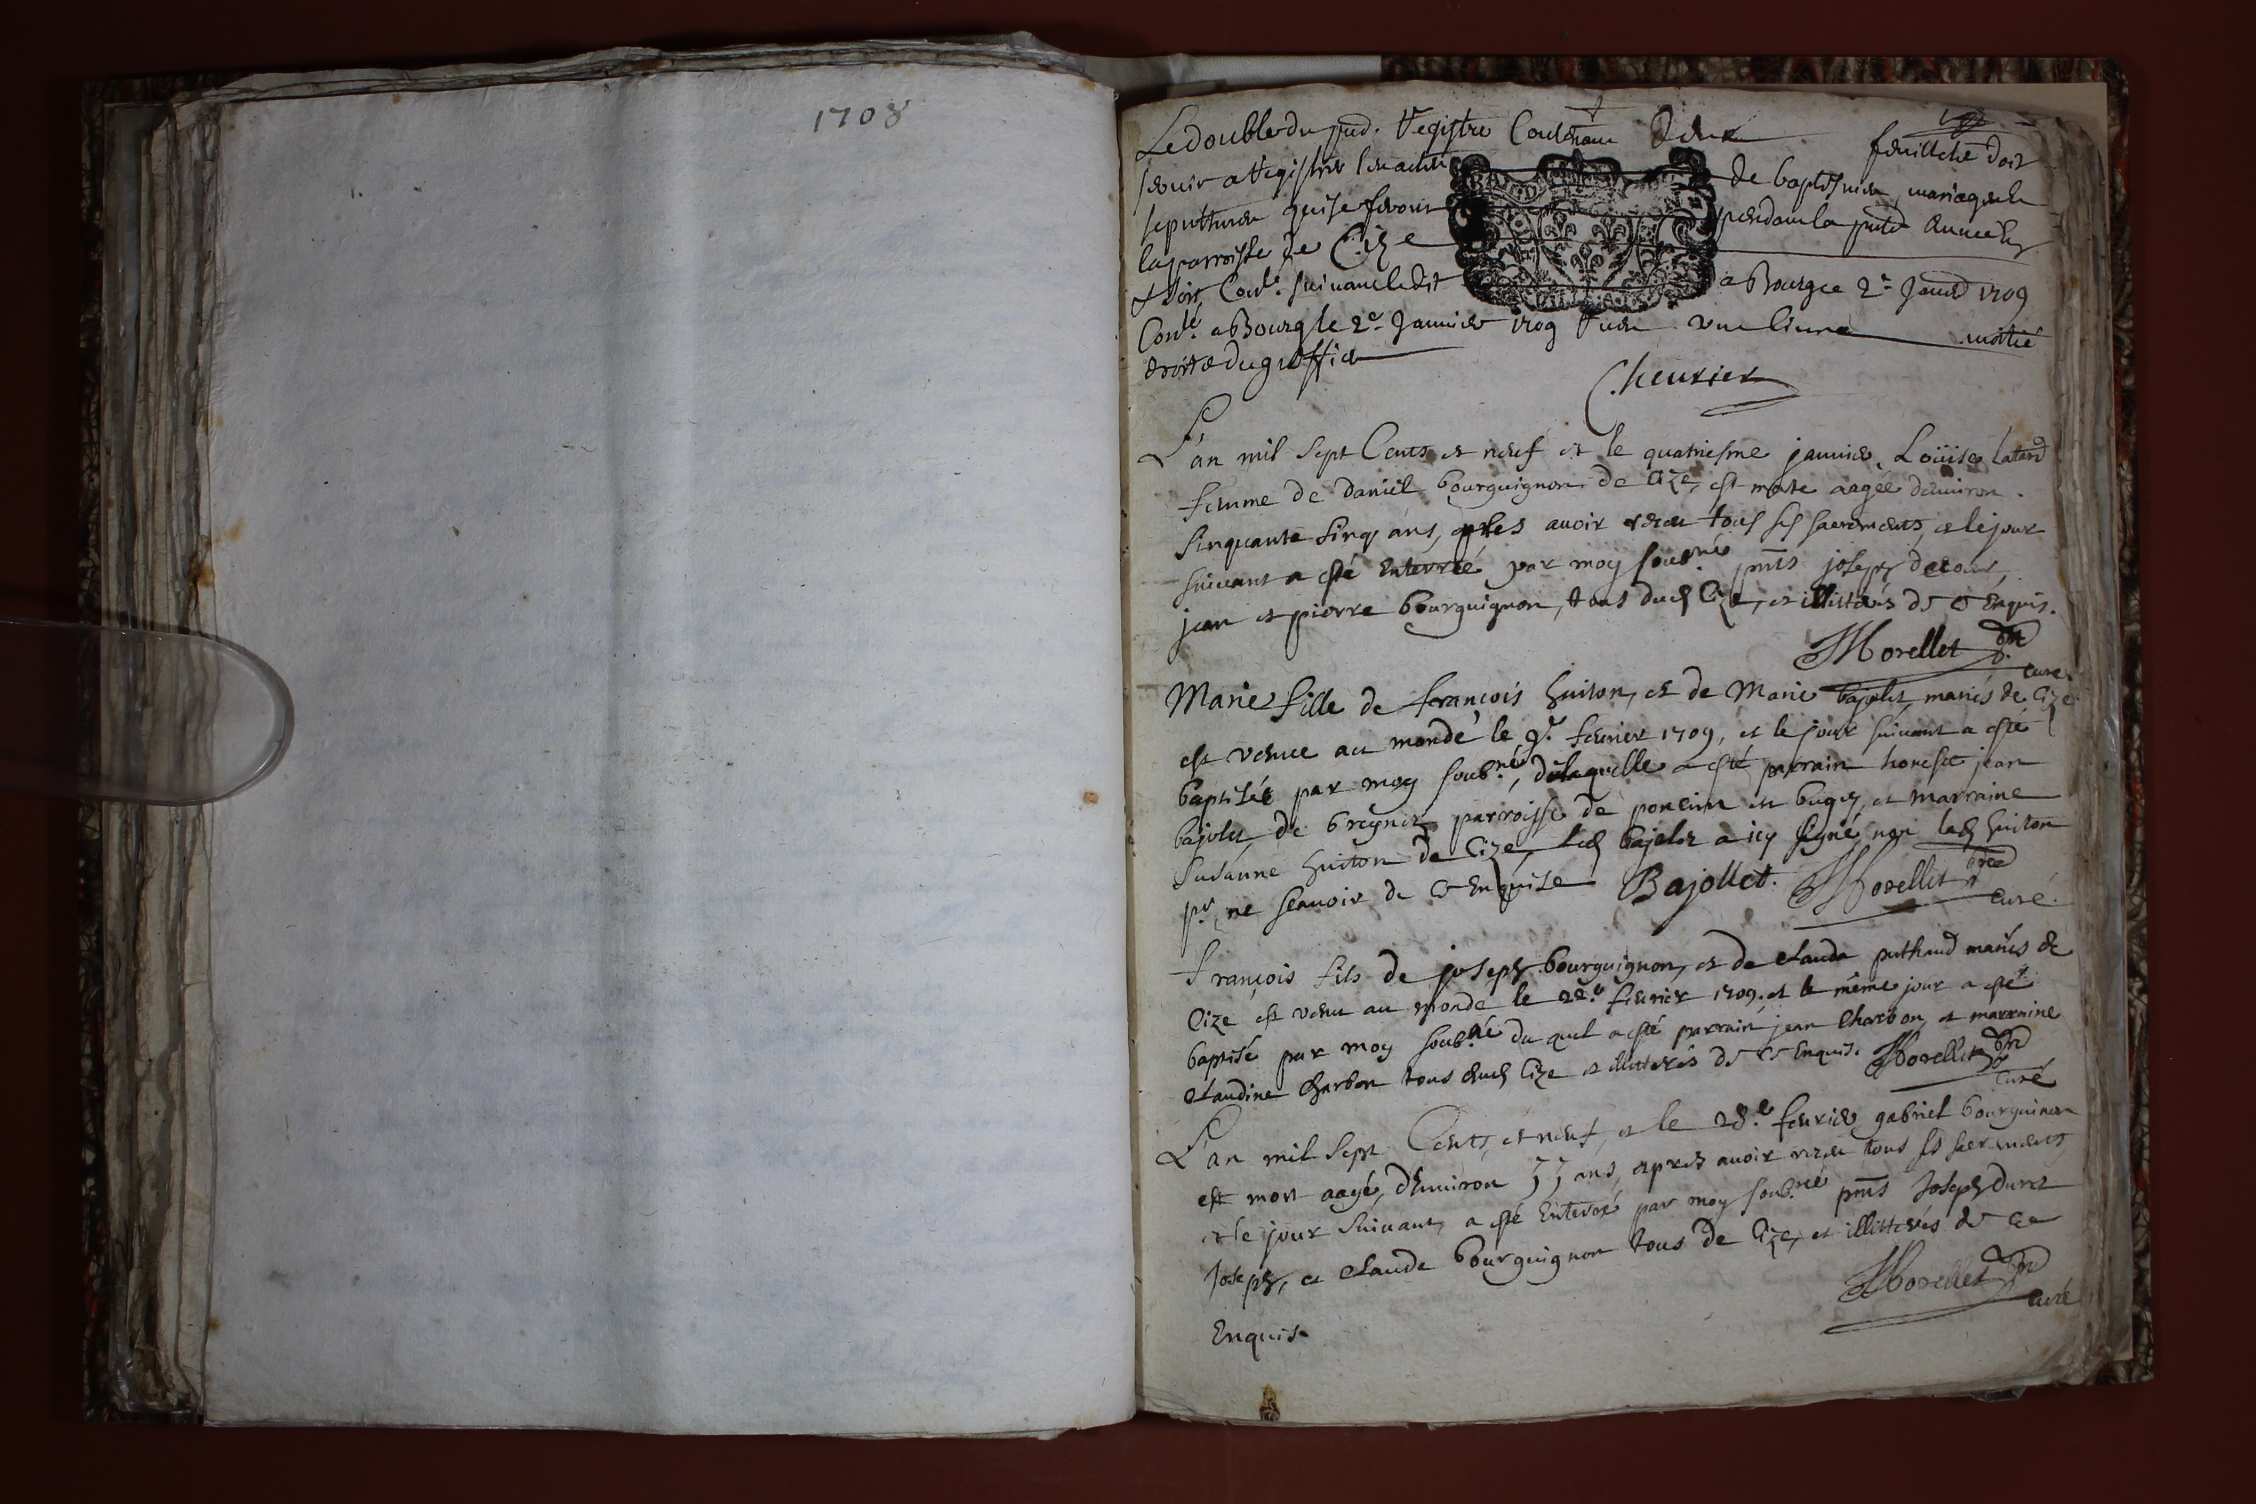 1708
Le double du pnt. Registre Contenant Deux feuillets doit
servir a Registrer les actes de baptismes, mariages et
sepultures qui se feront pendant la pnte Année en
la parroisse de Cize
& doit Conle. suivant ledit a Bourg ce 2e Janvier 1709
Conlé. a Bourg le 2e Janvier 1709 une livre moitié
droits du greffier
Cheurier
L'an mil sept Cents et neuf et le quatriesme janvier, Loüise
femme de daniel bourguignon de Cize, est morte aagée d'environ
sinquante sinq ans, apres avoir receu tous ses sacrements, et le jour
suivant a esté Enterrée par moy soubné. pnts joseph
jean et pierre bourguignon, tous dud Cize, et illitterés de ce Enquis.
Morellet ptre
curé.
Marie fille de françois huiton, et de Marie bajolet, mariés de Cize
est venue au monde le 9e. feurier 1709, et le jour suivant a esté
baptisée par moy soubné, de laquelle a esté parrain honeste jean
bajolet de breynet parroisse de poncin en bugey, et marraine
Susanne huiton de Cize, led bajolet a icy signé, non lad huiton
pr. ne scavoir de ce Enquise Bajollet. Morellet ptre
curé.
François fils de joseph bourguignon, et de claude puthaud mariés de
Cize est venu au monde le 22e. feurier 1709. et le même jour a esté
baptisé par moy soubné du quel a esté parrain jean Charbon, et marraine
claudine Charbon tous dud Cize et illitterés de ce Enquis. Morellet ptre
curé
L'an mil sept Cents, et neuf, et le 28.e feurier gabriel bourguinon
est mort aagé, d'environ 33 ans, apres avoir receu tous ses sacrements
et le jour suivant, a esté Enterré par moy soubné pnts Joseph duret
Joseph, et claude bourguignon tous de Cize, et illitterés de ce
Enquis. Morellet ptre
curé